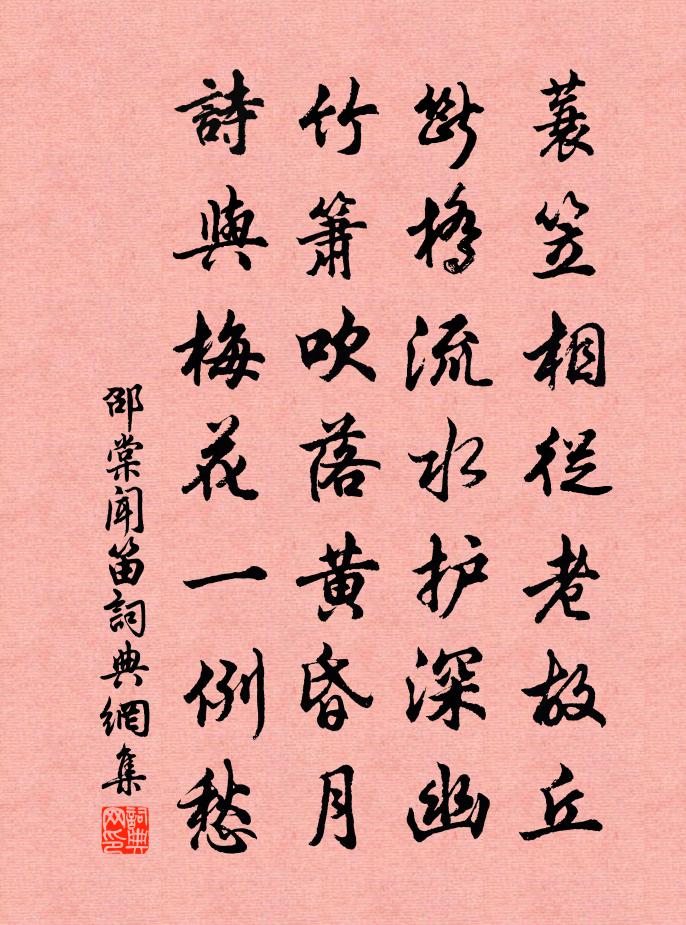 蓑笠相從老故丘
斷橋流水护深幽
竹簫吹落黄昏月
詩與梅花一例愁
邵棠聞笛詞典網集
詞典网印